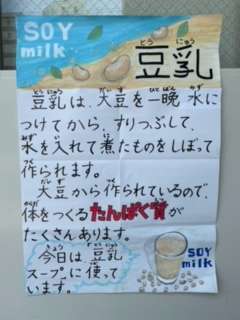 SOY
milk
豆乳
豆乳は、大豆を一晩 水に
つけてから、すりつぶして、
水を入れて煮たものをしぼって
作られます。
大豆から作られているので、
体をつくるたんぱく質が
たくさんあります。
今日は 豆乳
スープに使って
います。
SOY
milk